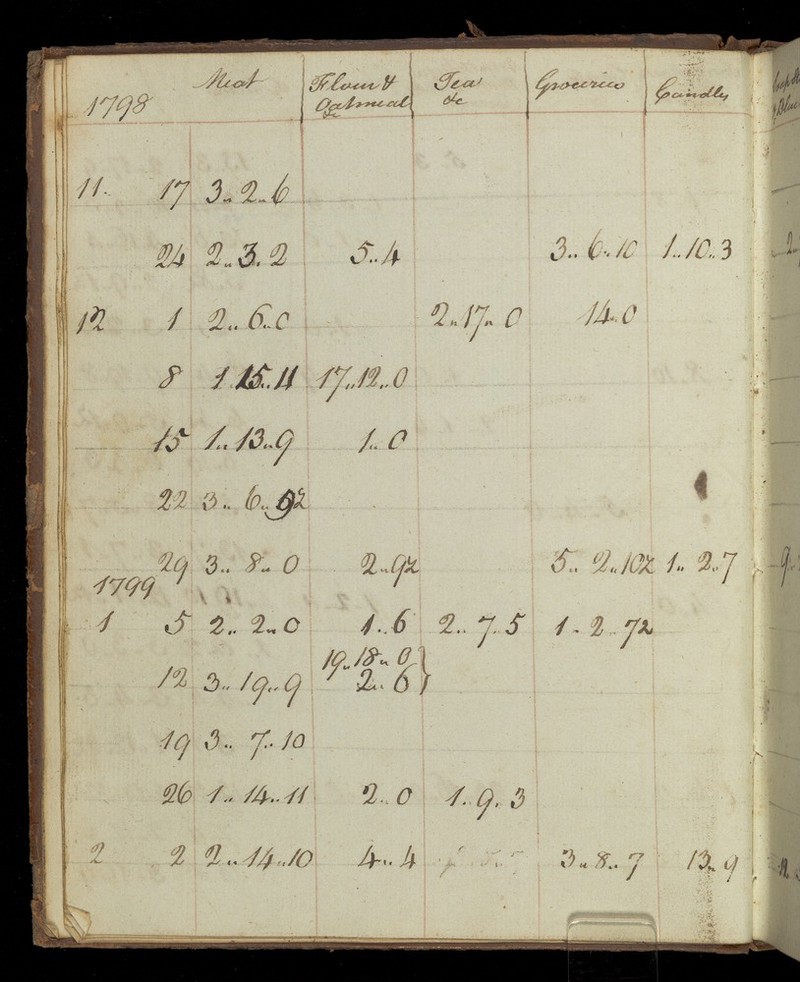 1798 Meat Flour & Oatmeal &c Tea &c Groceries Candles
11.. 17 3..2..6
24 2..3.2 5..4 3..6..10 1..10..3
12 1 2..6..0 2..17..0 14..0
8 1.15..11 17..12..0
15 1..13..9 1..0
22 3..6..
29 3..8..0 2..9½ 5..2..10½ 1..2..7
1799
1 5 2..2..0 1..6 2..7..5 1..2..7½
19..18..0
12 3..19..9 2..6
19 3..7..10
26 1..14..11 2..0 1..9..3
2 2 2..14..10 4..4 3..8..7 13..9